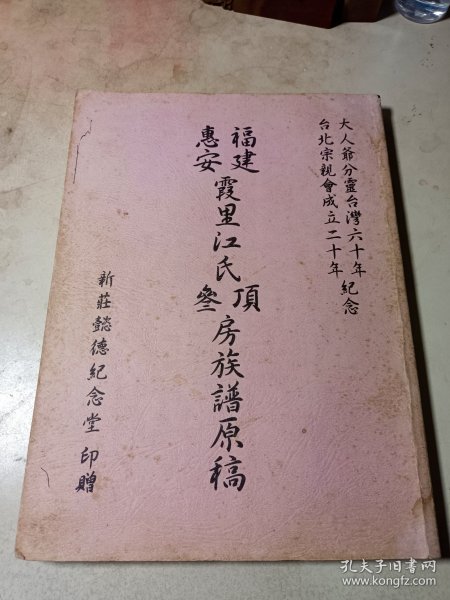 大人爺分靈台灣六十年紀念
台北宗親會成立二十年
福建
惠安
霞里江氏
頂
叁
房族譜原稿
新莊懿德紀念堂 印贈
孔夫子旧书网
www.kongfz.com